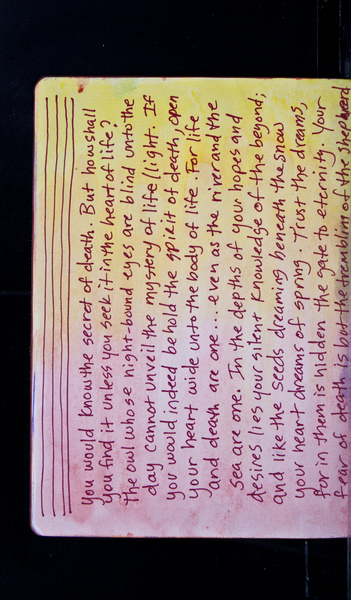 You would know the secret of death. But how shall
you find it unless you seek it in the heart of life?
The owl whose night-bound eyes are blind unto the
day cannot unveil the mystery of life/light. If
you would indeed behold the spirit of death, open
your heart wide unto the body of life. For life
and death are one... even as the river and the
sea are one. In the depths of your hopes and
desires lies your silent knowledge of the beyond;
and like the seeds dreaming beneath the snow
your heart dreams of spring. Trust the dreams,
for in them is hidden the gate to eternity. Your
fear of death is but the trembling of the Shepherd